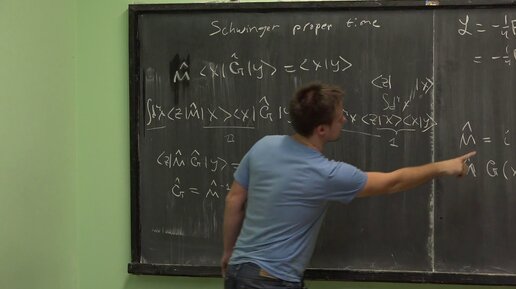 Schwinger proper time
M̂ <x|Ĝ|y> = <x|y>
<z| |x>
∫d⁴x<z|M̂|x><x|Ĝ|y> x<z|x><x|y>
1 1
<z|M̂ Ĝ|y> =
Ĝ = M̂⁻¹
L = -¼
= -¼
M̂ = i
M̂ G(x